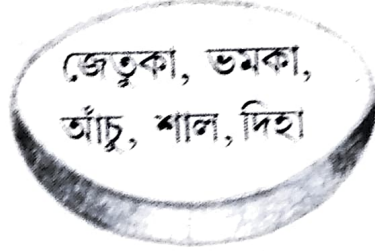 জেতুকা, ভমকা,
আঁচু, শাল, দিহা